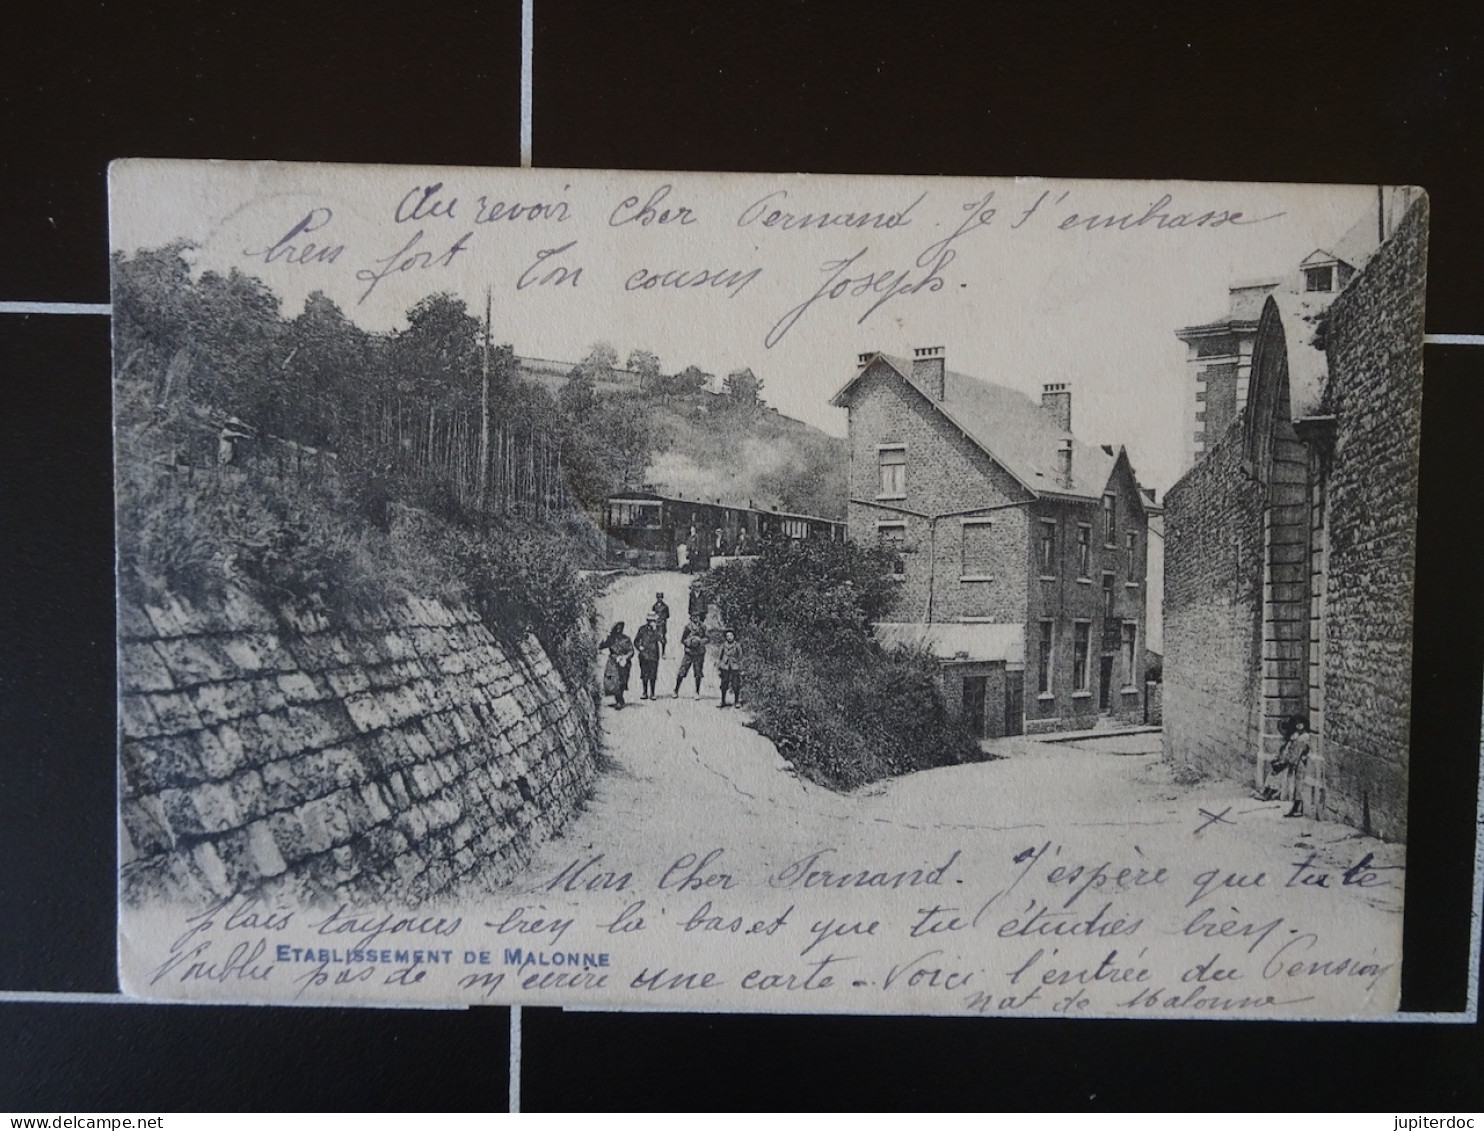 Au revoir Cher Fernand. Je t'embrasse
bien fort Ton cousin Joseph.
Mon Cher Fernand. J'espère que tu te
plais toujours bien là bas et que tu étudies bien.
ETABLISSEMENT DE MALONNE
N'oublie pas de m'écrire une carte - Voici l'entrée du Pension
nat de Malonne
jupiterdoc